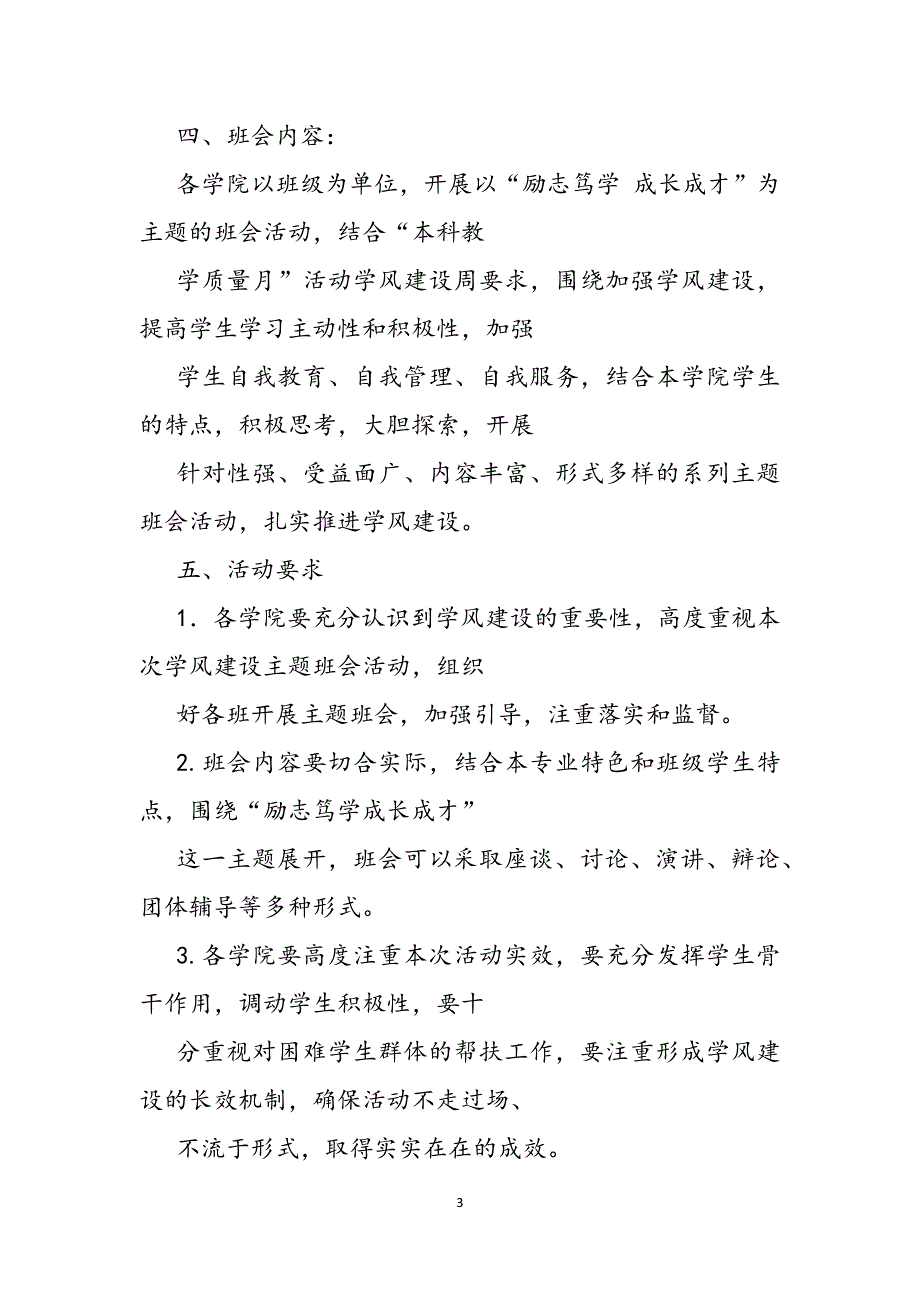 四、班会内容：
各学院以班级为单位，开展以“励志笃学 成长成才”为
主题的班会活动，结合“本科教
学质量月”活动学风建设周要求，围绕加强学风建设，
提高学生学习主动性和积极性，加强
学生自我教育、自我管理、自我服务，结合本学院学生
的特点，积极思考，大胆探索，开展
针对性强、受益面广、内容丰富、形式多样的系列主题
班会活动，扎实推进学风建设。
五、活动要求
1．各学院要充分认识到学风建设的重要性，高度重视本
次学风建设主题班会活动，组织
好各班开展主题班会，加强引导，注重落实和监督。
2.班会内容要切合实际，结合本专业特色和班级学生特
点，围绕“励志笃学成长成才”
这一主题展开，班会可以采取座谈、讨论、演讲、辩论、
团体辅导等多种形式。
3.各学院要高度注重本次活动实效，要充分发挥学生骨
干作用，调动学生积极性，要十
分重视对困难学生群体的帮扶工作，要注重形成学风建
设的长效机制，确保活动不走过场、
不流于形式，取得实实在在的成效。
3